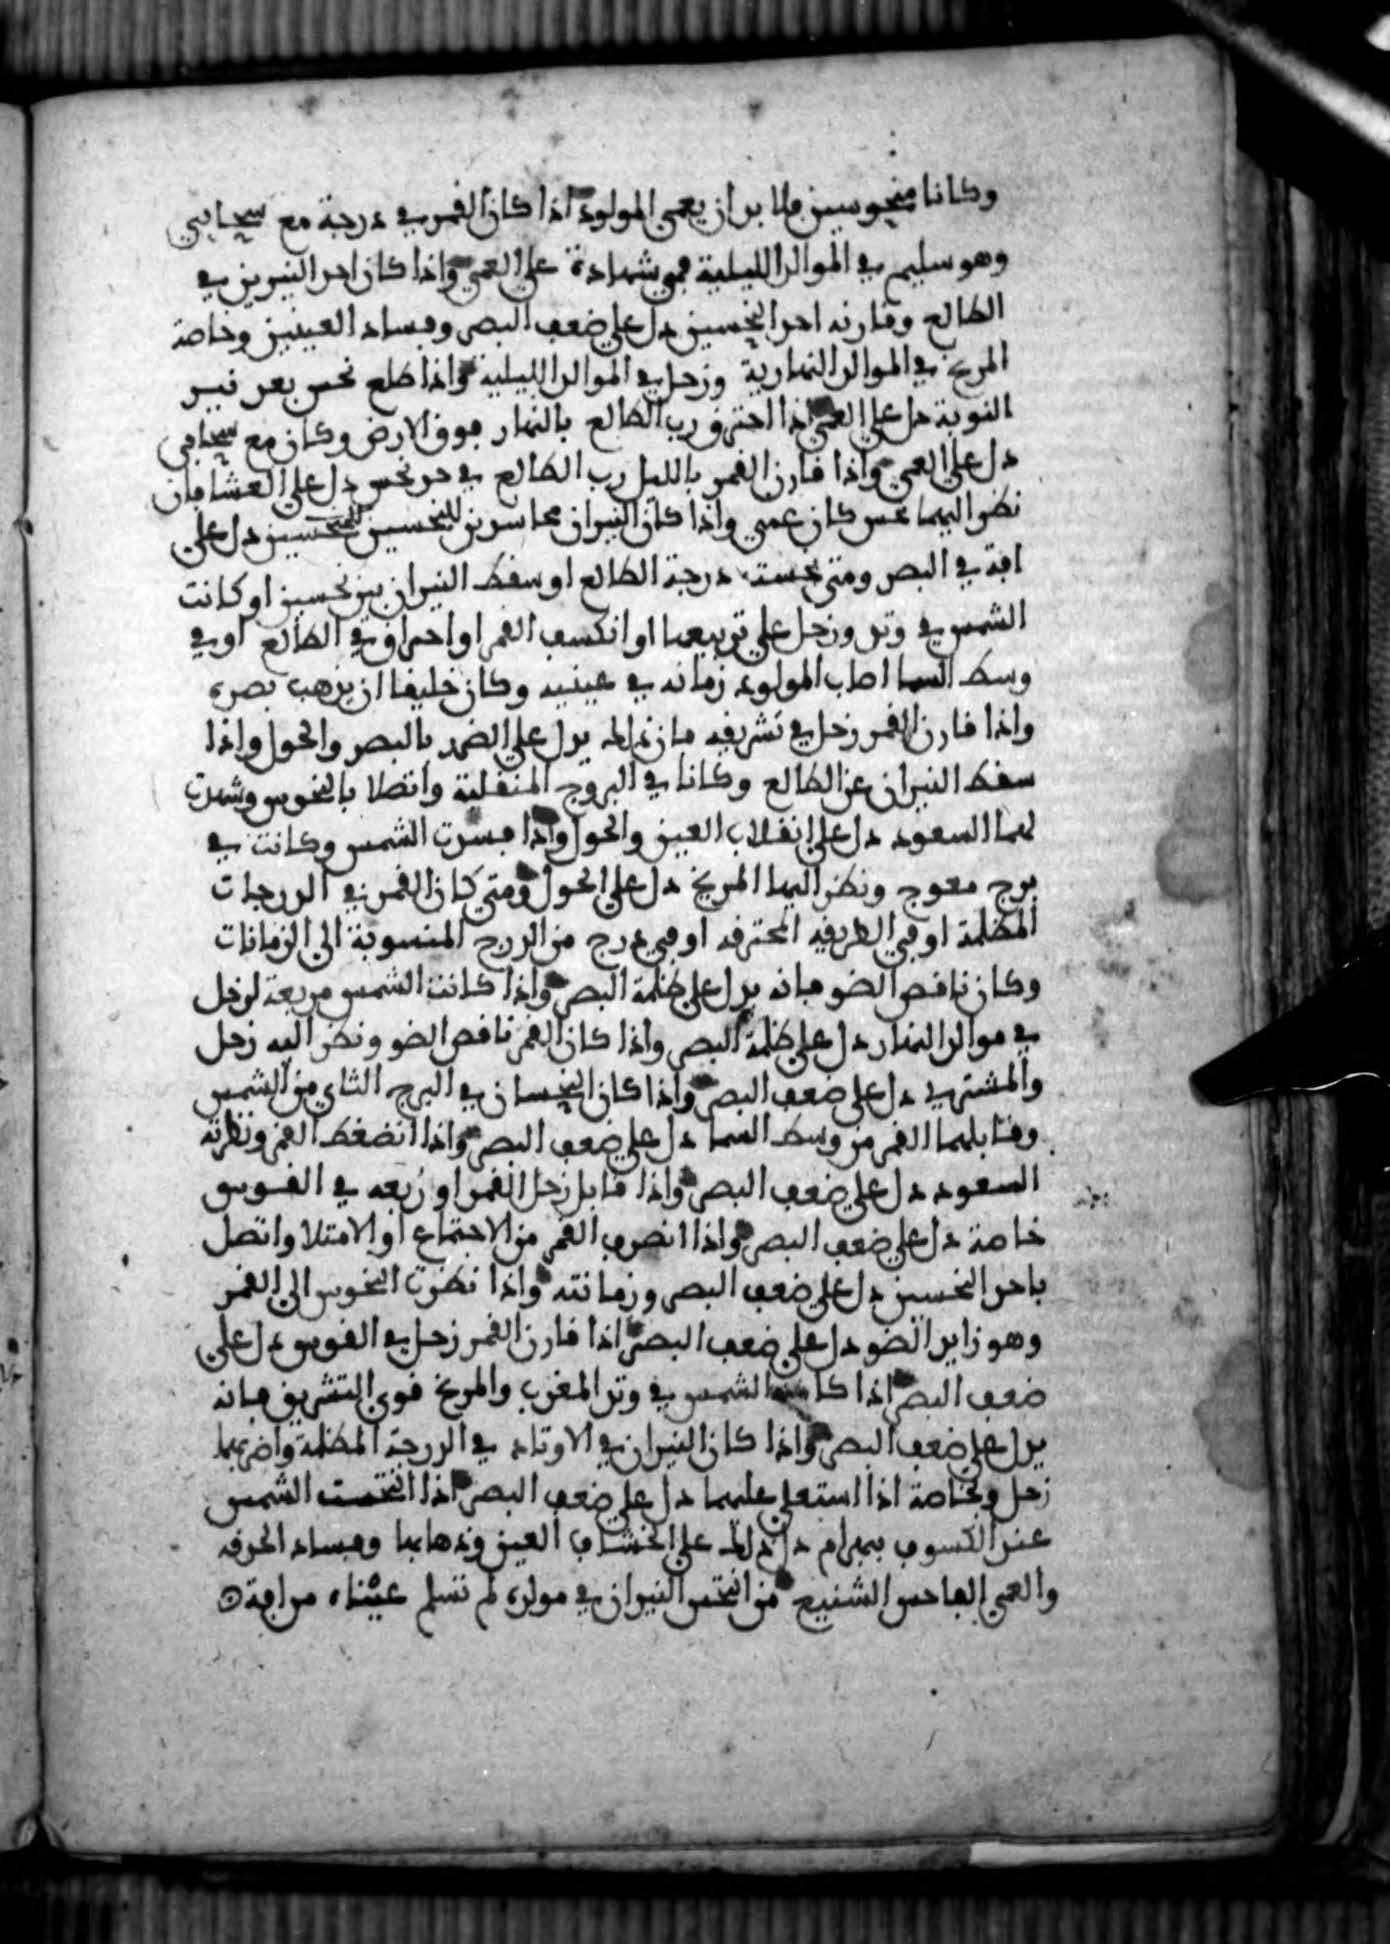 وكانا منحوسين فلا بد ان يعمى المولود اذا كان القمر في درجة مع سحابي
وهو سليم في الموالد الليلية فهي شهادة على العمى واذا كان احد النيرين في
الطالع وقارنه احد النحسين دل على ضعف البصر وفساد العينين وخاصة
المريخ في الموالد النهارية وزحل في الموالد الليلية واذا طلع نحس بعد نير
النوبة دل على العمى اذا احترق رب الطالع بالنهار فوق الارض وكان مع سحابي
دل على العمى واذا قارن القمر بالليل رب الطالع في حد نحس دل على العشا فان
نظر اليهما نحس كان عمى واذا كان النيران محاسدين للنحسين دل على
افة في البصر ومتى نحست درجة الطالع او سقط النيران بين نحسين او كانت
الشمس في وتد وزحل على تربيعها او انكسف القمر او احتراق في الطالع او في
وسط السما اصاب المولود زمانه في عينيه وكان خليقا ان يذهب بصره
واذا قارن القمر زحل في تشريقه فان ذلك يدل على الضرر بالبصر والحول واذا
سقط النيران عن الطالع وكانا في البروج المنقلبة واتصلا بالنحوس وشهدت
لهما السعود دل على انقلاب العين والحول واذا فسدت الشمس وكانت في
برج معوج ونظر اليها المريخ دل على الحول ومتى كان القمر في الدرجات
المظلمة او في الطريقه المحترقه او في درج من الدرج المنسوبة الى الزمانات
وكان ناقص الضو فانه يدل على ظلمة البصر واذا كانت الشمس مربعة لزحل
في موالد النهار دل على ظلمة البصر واذا كان القمر ناقص الضو ونظر اليه زحل
والمشتري دل على ضعف البصر واذا كان النحسان في البرج الثاني من الشمس
وقابلهما القمر من وسط السما دل على ضعف البصر واذا انضغط القمر ونظرته
السعود دل على ضعف البصر واذا قابل زحل القمر او ربعه في القوس
خاصة دل على ضعف البصر واذا انصرف القمر من الاجتماع او الامتلا واتصل
باحد النحسين دل على ضعف البصر وزمانته واذا نظرت النحوس الى القمر
وهو زايد الضو دل على ضعف البصر اذا قارن القمر زحل في القوس دل على
ضعف البصر اذا كانت الشمس في وتد المغرب والمريخ قوي التشريق فانه
يدل على ضعف البصر واذا كان النيران في الاوتاد في الدرجة المظلمة واضر بهما
زحل وبخاصة اذا استعلى عليهما دل على ضعف البصر اذا انتحست الشمس
عند الكسوف ببهرام دل ذلك على انخساف العين وذهابها وفساد الحدقه
والعمى الفاحش الشنيع من انتحس النيران في مولده لم تسلم عيناه من افة